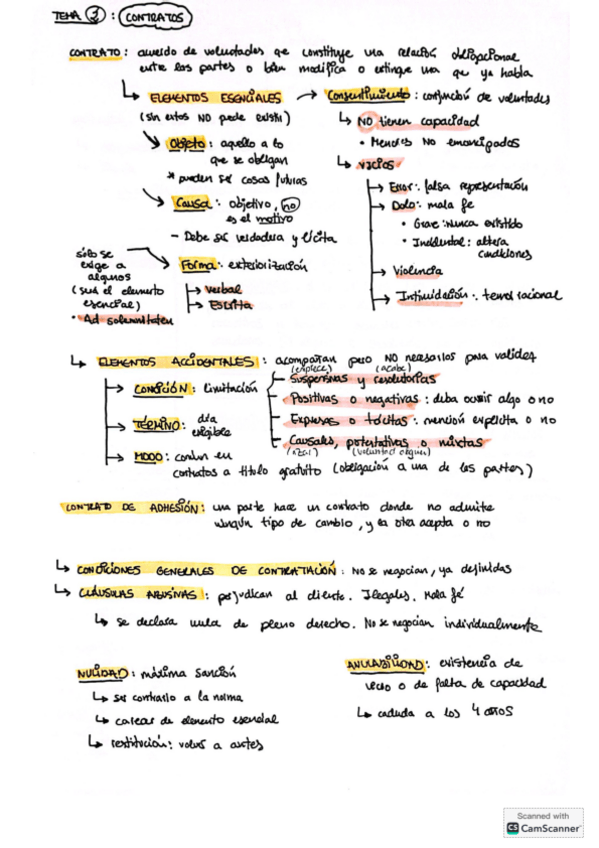 TEMA 3 : CONTRATOS
CONTRATO : acuerdo de voluntades que constituye una relación obligacional
entre las partes o bien modifica o extingue una que ya había
↳ ELEMENTOS ESENCIALES
(sin estos NO puede existir)
Objeto : aquello a lo
que se obligan
* pueden ser cosas futuras
Causa : objetivo, no
es el motivo
- Debe ser verdadera y lícita
sólo se
exige a
algunos
(será el elemento
esencial)
• Ad solemnitatem
Forma : exteriorización
→ Verbal
→ Escrita
→ Consentimiento : conjunción de voluntades
↳ NO tienen capacidad
• Menores NO emancipados
↳ vicios
→ Error : falsa representación
→ Dolo : mala fe
• Grave : Nunca existido
• Incidental : altera
condiciones
→ Violencia
→ Intimidación : temor racional
↳ ELEMENTOS ACCIDENTALES : acompañan pero NO necesarios para validez
→ CONDICIÓN : limitación
(empiece) (acabe)
Suspensivas y resolutorias
Positivas o negativas : deba ocurrir algo o no
Expresas o tácitas : mención explícita o no
Causales, potestativas o mixtas
(azar) (voluntad alguien)
→ TÉRMINO : día
exigible
→ MODO : común en
contratos a titulo gratuito (obligación a una de las partes)
CONTRATO DE ADHESIÓN : una parte hace un contrato donde no admite
ningún tipo de cambio, y la otra acepta o no
↳ CONDICIONES GENERALES DE CONTRATACIÓN : No se negocian, ya definidas
↳ CLÁUSULAS ABUSIVAS : perjudican al cliente. Ilegales. Mala fé
↳ se declara nula de pleno derecho. No se negocian individualmente
NULIDAD : máxima sanción
↳ ser contrario a la norma
↳ carecer de elemento esencial
↳ restitución : volver a antes
ANULABILIDAD : existencia de
vicio o de falta de capacidad
↳ caduca a los 4 años
Scanned with
CS CamScanner